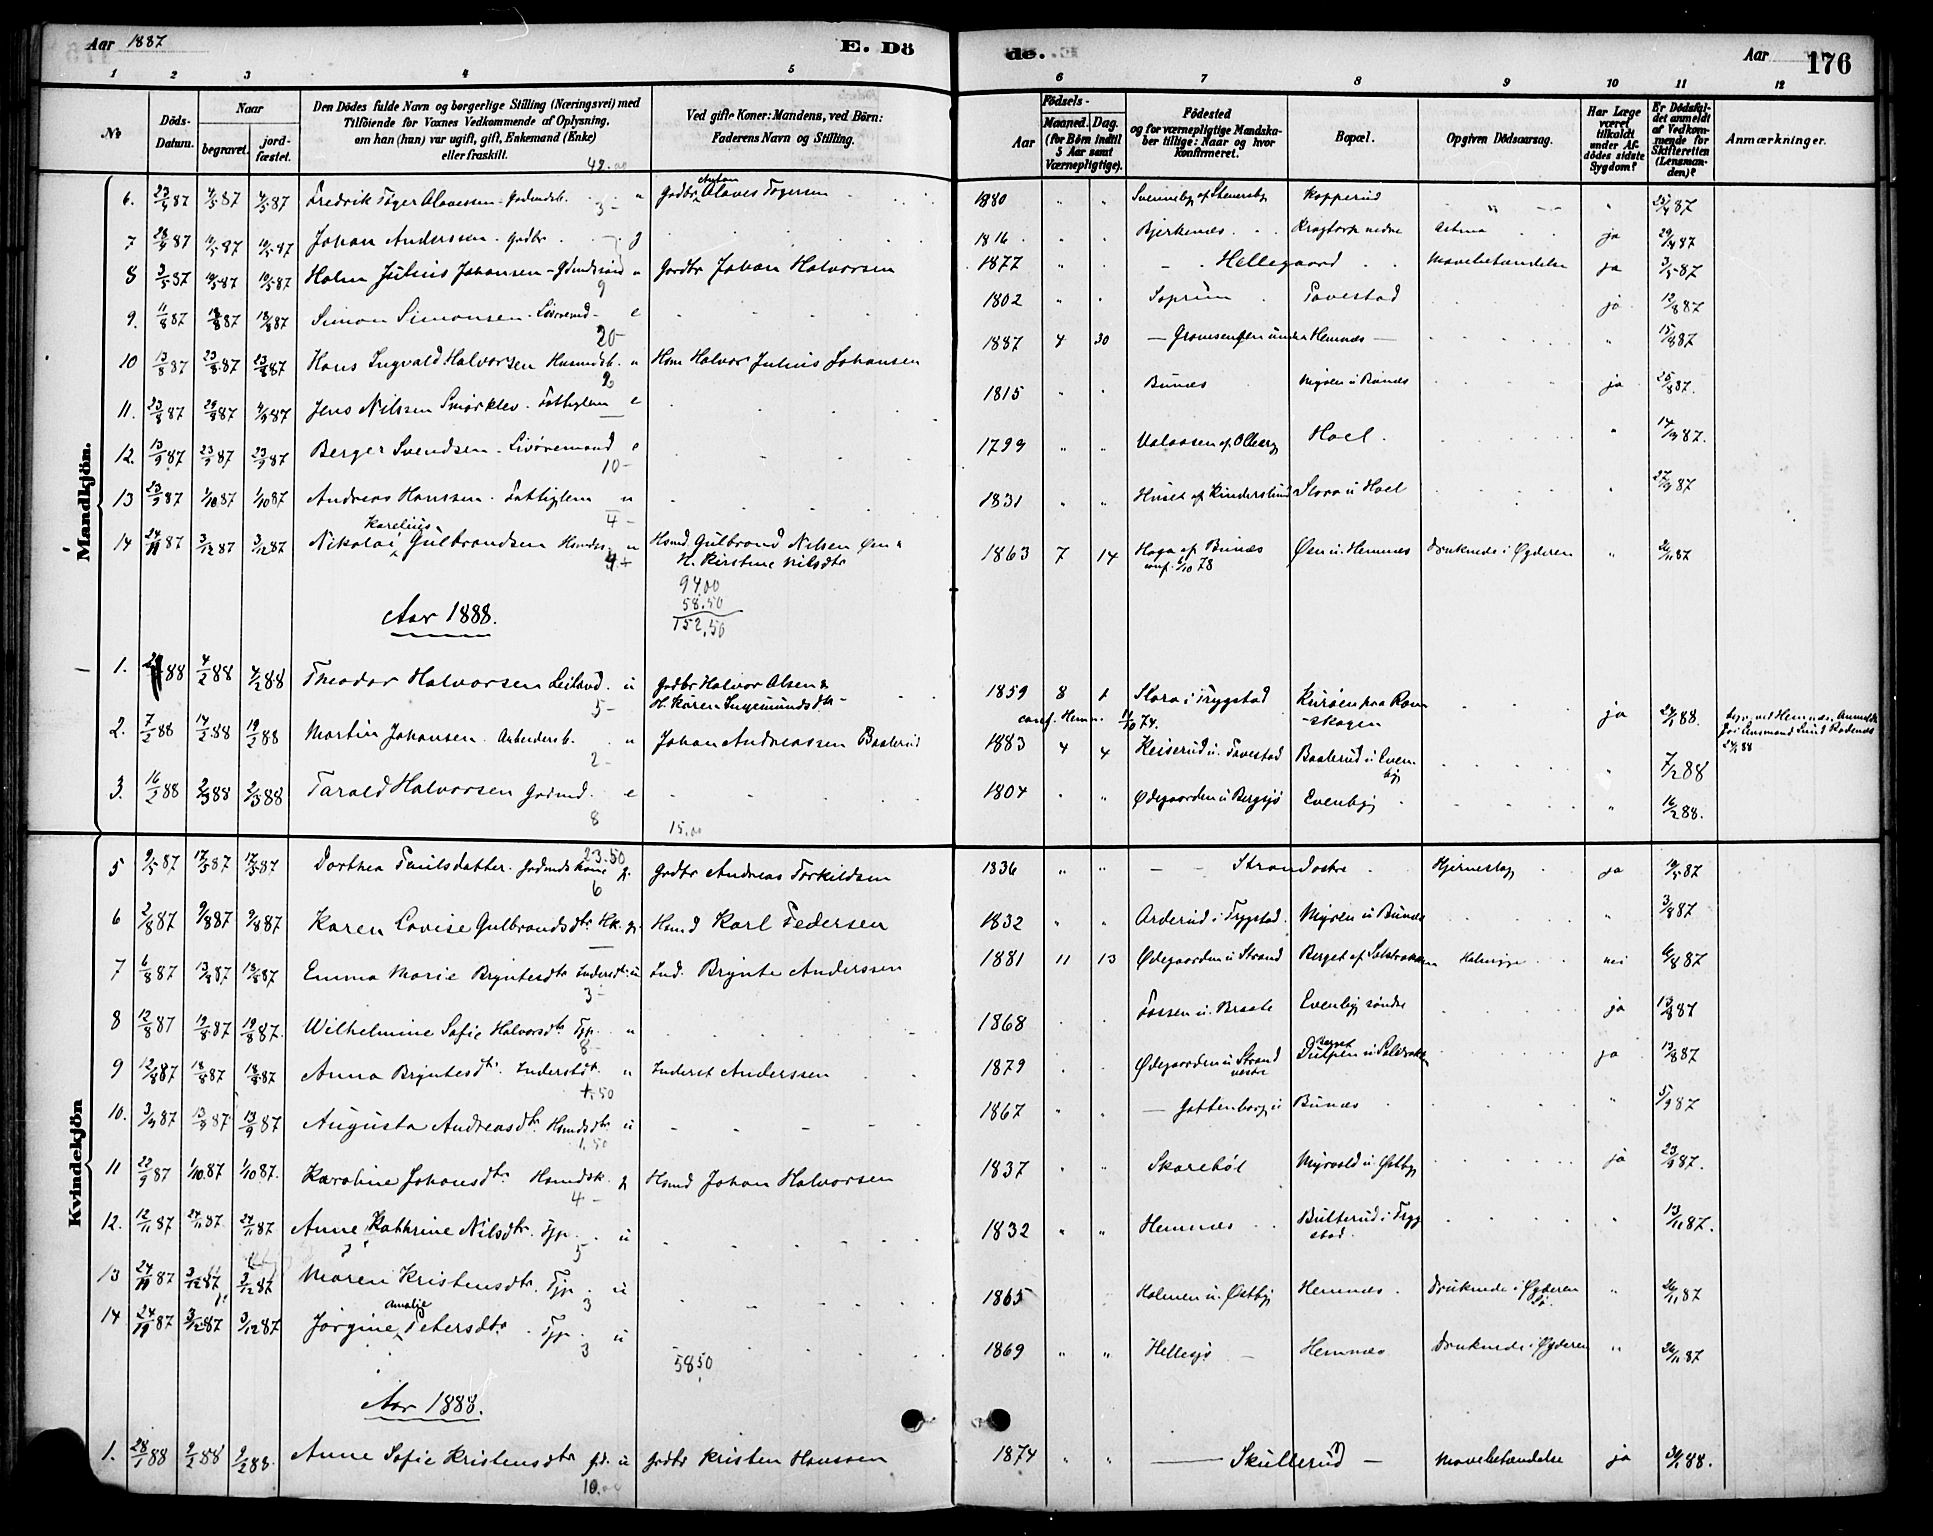 Aar 1887
E. Dö
de.
Aar
176
1 2 3 4 5 6 7 8 9 10 11 12
No
Döds-
Datum.
Naar
begravet.
jord-
fæstet.
Den Dödes fulde Navn og borgerlige Stilling (Næringsvei) med
Tilföiende for Voxnes Vedkommende af Oplysning,
om han (hun) var ugift, gift, Enkemand (Enke)
eller fraskilt.
Ved gifte Koner: Mandens, ved Börn:
Faderens Navn og Stilling.
Födsels-
Aar
Maaned. Dag.
(for Börn indtil
5 Aar samt
Værnepligtige).
Födested
og for værnepligtige Mandska-
ber tillige: Naar og hvor
konfirmeret.
Bopæl.
Opgiven Dödsaarsag.
Har Læge
været
tilkaldt
under Af-
dödes sidste
Sygdom?
Er Dödsfal-
det anmeldt
af Vedkom-
mende for
Skifteretten
(Lensman-
den)?
Anmærkninger.
Mandkjön.
6. 23/4 87 4/5 87 4/5 87 Fredrik Töger Olavessen Gaardmds. 3- u Gadbr Anton Olaves Tögersen 1880 " " Svenneby af Stenersby Kopperud " 25/4 87
7 28/4 87 10/5 87 10/5 87 Johan Anderssen. Gadbr. g 1816 Bjerkenæs Kragtorp nedre Astma ja 29/4 87
8 3/5 87 10/5 87 10/5 87 Holm Julius Johansen Gdmdssön u 9 Gardbr Johan Halvorsen 1877 " Hellegaard Mavebetændelse ja 3/5 87
9. 11/8 87 18/8 87 18/8 87 Simon Simonsen. Livöremd e 20- 1802 " Soprim Tovestad ja 12/8 87
10 13/8 87 23/8 87 23/8 87 Hans Ingvald Halvorsen Husmdsb. u 2 Hsm Halvor Julius Johansen 1887 4 30 Gromsengen under Hemnæs " 15/8 87
11. 23/8 87 29/8 87 4/9 87 Jens Nilssen Smörklev. Fattiglem e 1815 Bunæs Myren u Bunæs ja 25/8 87.
12. 13/9 87 23/9 87 23/9 87 Berger Svendsen. Livöremand e 10- 1799 " " Ualaasen af Olberg Hoel " 14/9 87.
13 23/9 87 1/10 87 1/10 87 Andreas Hanssen. Fattiglem u 4- 1831 " Huset af Kinderslund Slora u Hoel " 27/9 87
14 24/11 87 3/12 87 3/12 87 Nikolai Karelius Gulbrandsen Husmds. u 4 Hsmd Gulbrand Nilsen Øen &
H. Kirstine Nilsdtr 1863 7 14 Haga af Bunæs Øen u. Hemnæs Druknede i Øgderen " 26/11 87
conf. 6/10 78
94.00
58.50
152,50
Aar 1888.
1. 88 4/2 88 4/2 88 Theodor Halvorsen Leiland. u 5- Gadbr Halvor Olsen &
H. Karen Ingemundsdtr 1859 8 1 Slora i Trygstad Kuröen paa Röm-
skogen ja 27/1 88.
conf. Hemn. 11/10 74.
2. 7/2 88 14/2 88 19/2 88 Martin Johansen. Arbeidersb. 2- u Johan Andreassen Baalerud 1883 4 4 Keiserud u. Tovestad Baalerud u Even-
by " 7/2 88
3. 16/2 88 2/3 88 2/3 88 Tarald Halvorsen Gadmd. e 8 15.00 1804 " Ødegaarden u Bergsjö Evenby " 16/2 88.
Kvindekjön
5 9/5 87 17/5 87 17/5 87 Dorthea Paulsdatter. Gadmds kone g. 6 23.50 Gadbr Andreas Torkildsen 1836 " " Strand østre Hjerneslag ja 10/5 87
6 2/8 87 9/8 87 9/8 87 Karen Lovise Gulbrandsdtr. Hk. g. Hsmd Karl Pedersen 1832 " " Arderud i Trygstad. Myren u Bunæs " 3/8 87
7 6/8 87 13/8 87 13/8 87 Emma Marie Bryntesdtr Inderstdtr. u 3- Ind. Brynte Anderssen 1881 11 13 Ødegaarden u Strand nei 6/8 87
8 12/8 87 19/8 87 19/8 87. Wilhelmine Sofie Halvorsdtr. Tjp. u 8- 1868 Fossen u. Braate Evenby söndre ja 13/8 87
9 12/8 87 18/8 87 18/8 87 Anna Bryntesdtr. Inderstdtr. u 1.50 Inderst Anderssen 1879 Ødegaarden u Strand
vestre ja 13/8 87
10. 3/9 87 13/9 87 13/9 87 Augusta Andreasdtr. Hsmdsdtr u 1,50 1867 " " Gottenborg u Bunæs " 5/9 87
11 22/9 87 1/10 87 1/10 87. Karoline Johansdtr. Hsmdsk. g 4- Hsmd Johan Halvorsen 1837 " Skarebøl Myrvold u. Østby ja 23/9 87.
12. 12/11 87 24/11 87 24/11 87 Anne Kathrine Nilsdtr. Tjp. u 5 1832 " " Hemnæs Bulterud i Tryg-
stad. " 13/11 87.
13 24/11 87 3/12 87 3/12 87 Maren Kristensdtr. Tjp. u 3 1865 Holmen u. Østby Hemnæs. Druknede i Øgderen
Sö. " 26/11 87
14 24/11 87 3/12 87 3/12 87 Jörgine Amalie Petersdtr. Tjp. u 3 58.50 1869 " " Hellesjö Hemnæs Druknede i Øgderen " 26/11 87
Aar 1888.
1. 28/1 88 9/2 88 9/2 88. Anne Sofie Kristensdtr Gd. u 10.00 Gadbr Kristen Hanssen 1874 " " Skullerud Mavebetændelse ja 30/1 88.